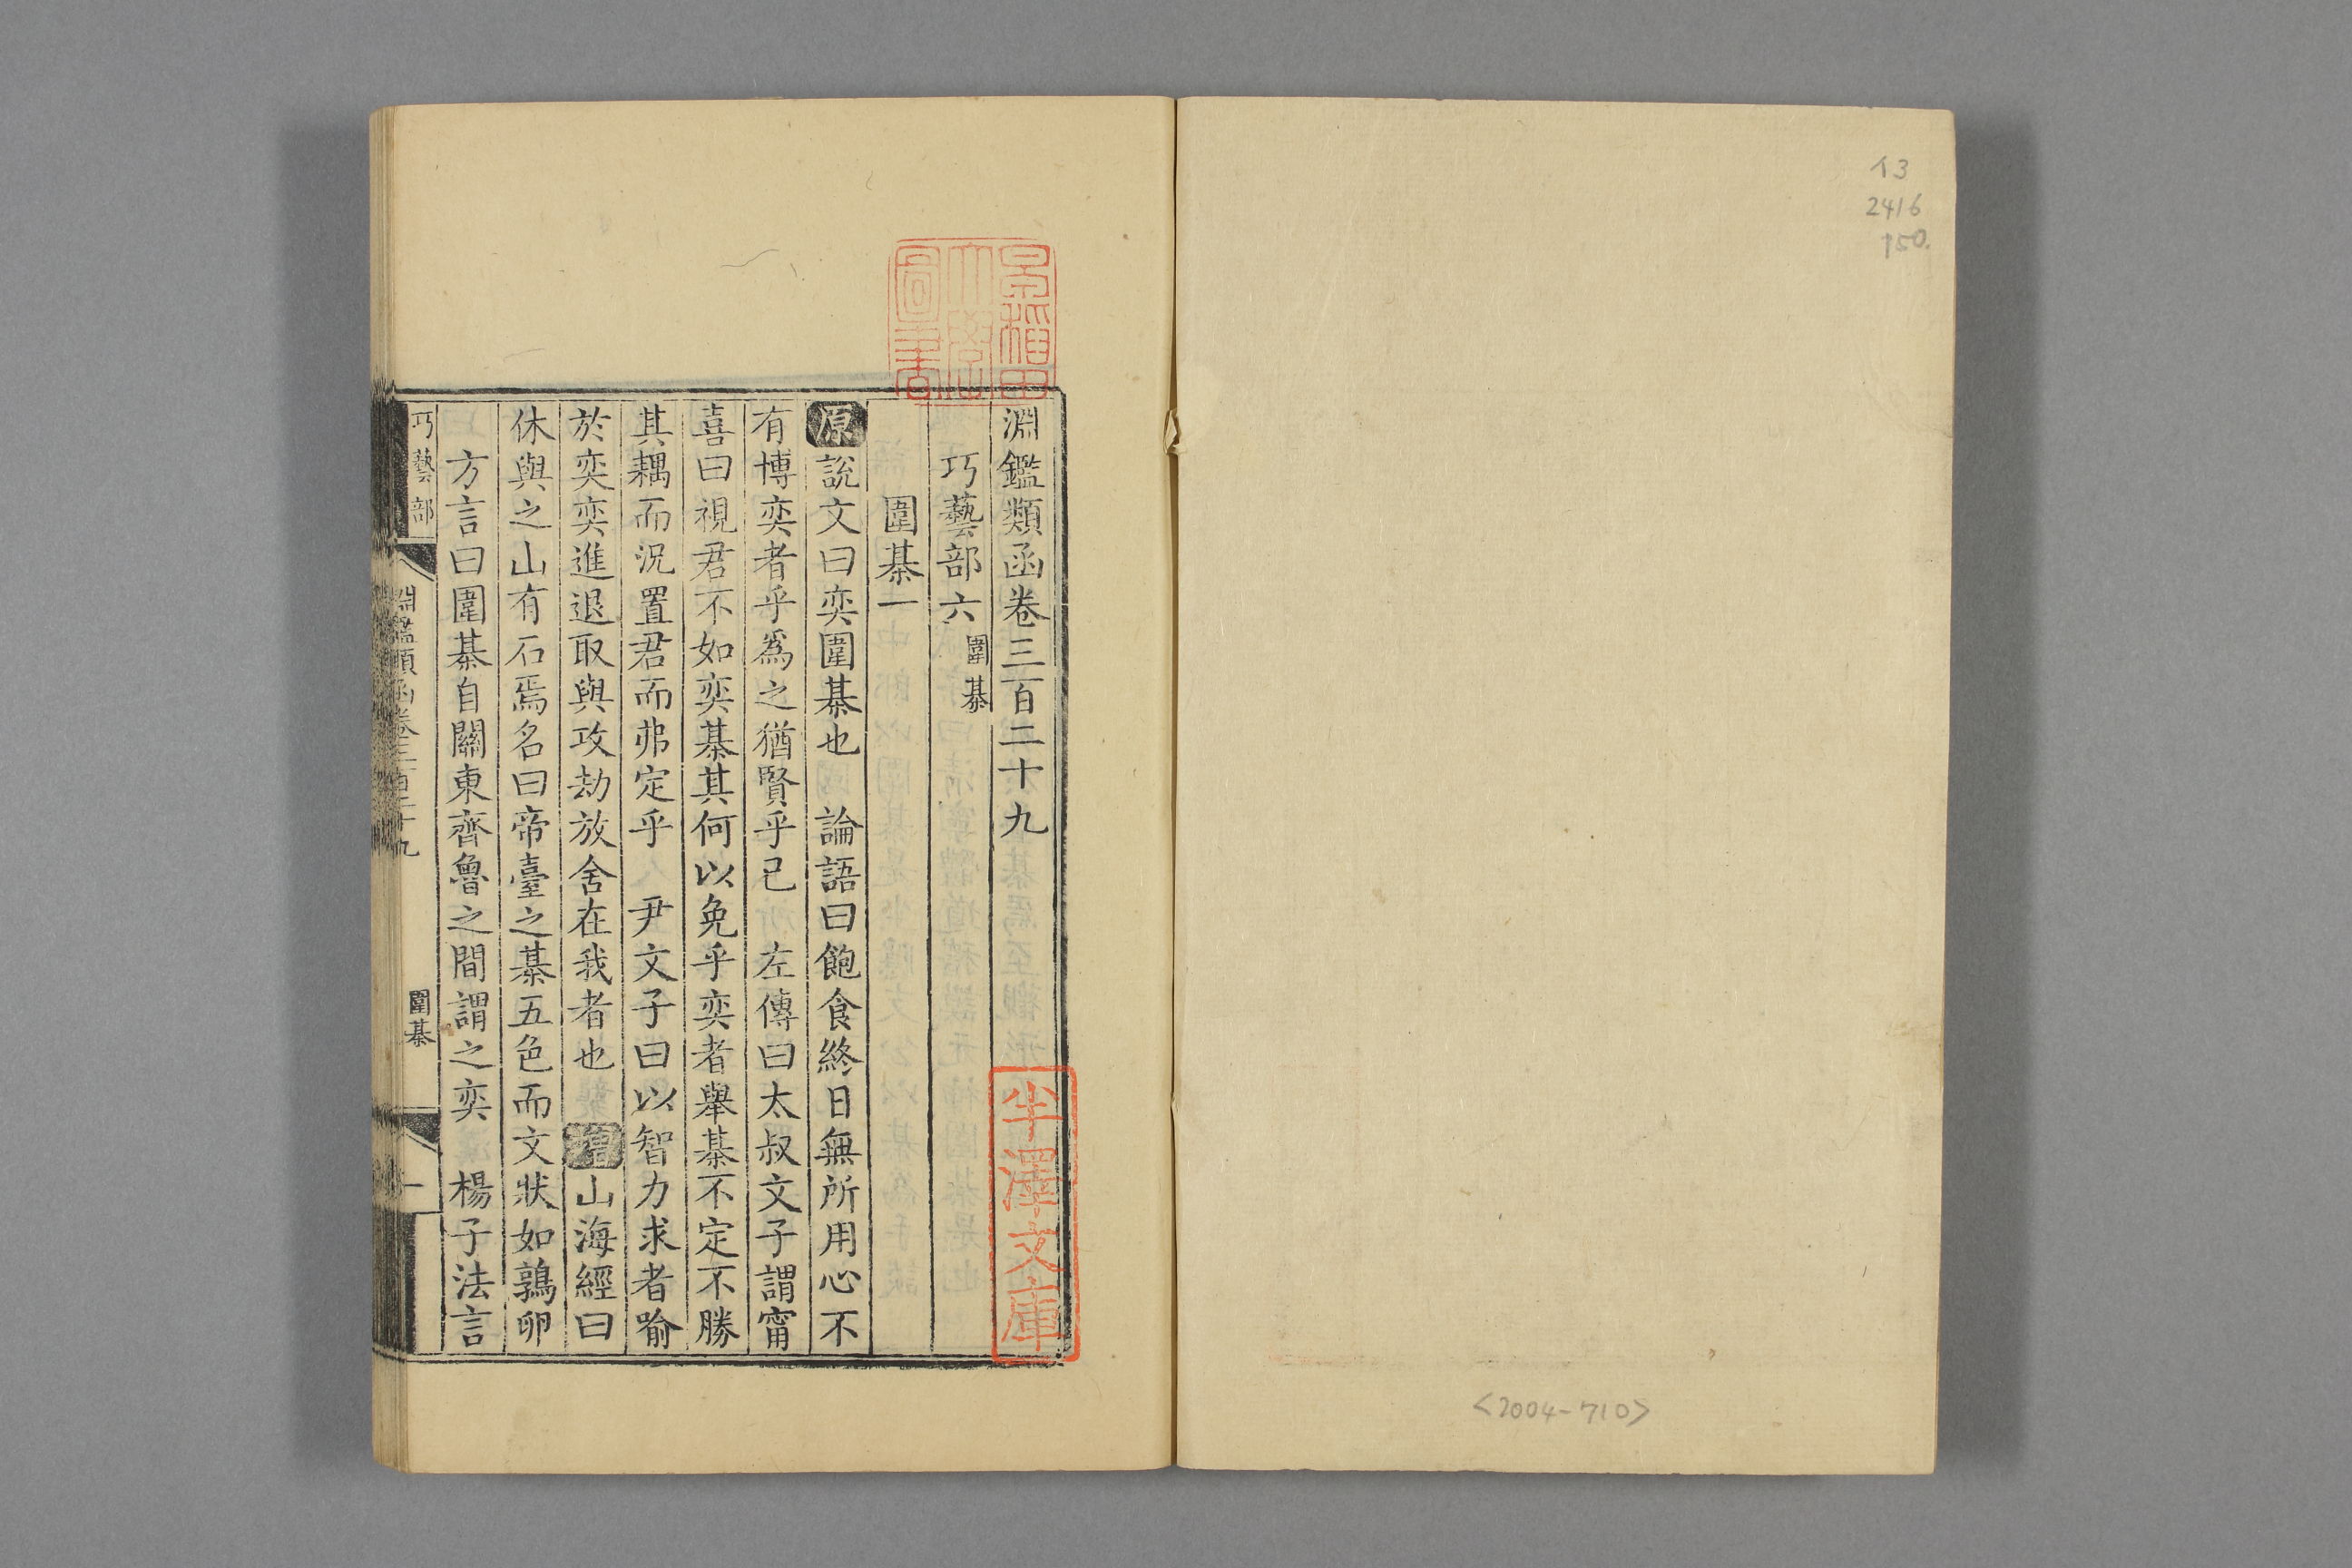 イ3
2416
150.
<2004-710>
早稲田
大學
圖書
半澤文庫
淵鑑類函卷三百二十九
巧藝部六圍棊
圍棊一
原說文曰奕圍棊也 論語曰飽食終日無所用心不
有博奕者乎爲之猶賢乎已 左傳曰太叔文子謂甯
喜曰視君不如奕棊其何以免乎奕者舉棊不定不勝
其耦而況置君而弗定乎 尹文子曰以智力求者喻
於奕奕進退取與攻劫放舍在我者也 增山海經曰
休與之山有石焉名曰帝臺之棊五色而文狀如鶉卵
方言曰圍棊自關東齊魯之間謂之奕 楊子法言
巧藝部
淵鑑類函卷三百二十九
圍棊
一